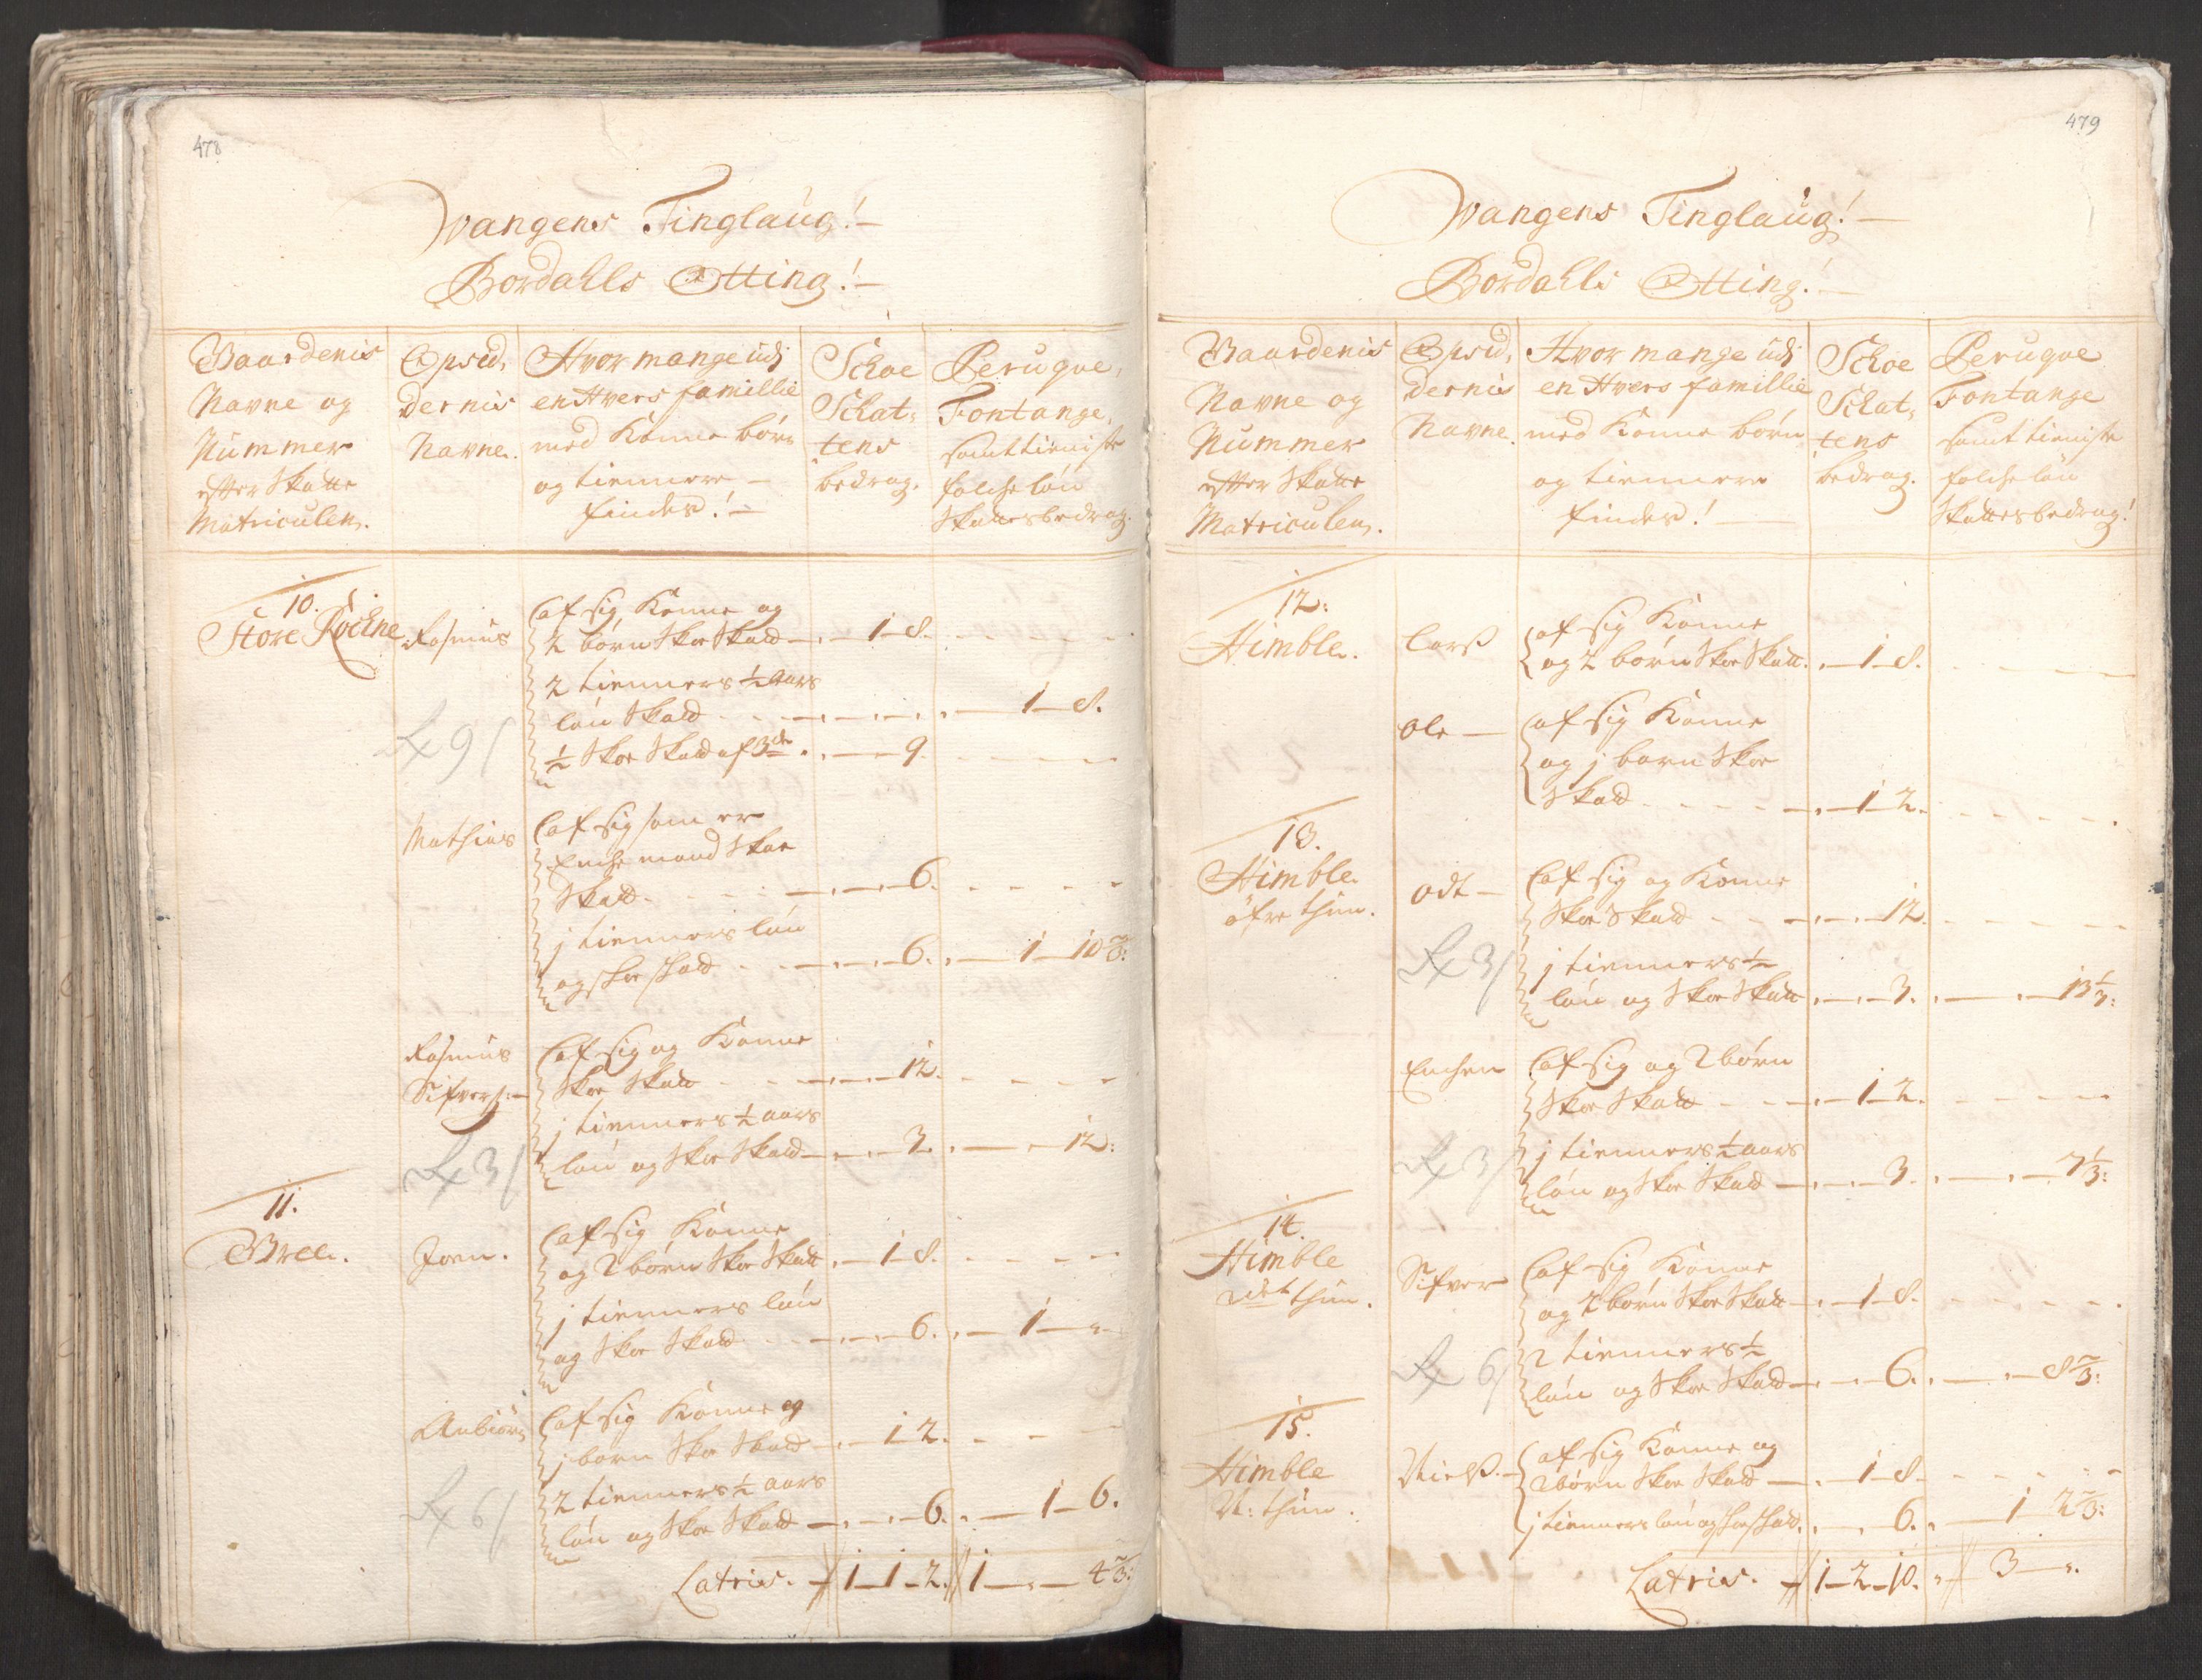 478
Wangens Tinglaug!
Bordahls Otting!
Gaardenis
Navne og
Nummer
efter Skatte
Matriculen.
Opsid,
dernis
Navne.
Hvor mange udj
en Hvers famillie
med Konne börn
og tiennere
findes!
Schoe
Schat,
tens
bedrag.
Peruqve,
Fontange,
samt tieniste
folche lön
Skattes bedrag.
10.
Store Röckne
Rasmus
af sig Konne og
2 börn Skoe Skatt 1 8.
2 tienners ½ Aars
lön Skatt 1 8.
½ Skoe Skatt af 3de 9.
9/
Mathias
af sig som er
Enche mand Skoe
Skatt 6.
j tienners lön
og skoe skatt 6. 1 10 2/3:
Rasmus
Sifvers:
af sig og Konne
Skoe Skatt 12.
j tienners ½ aars
lön og Skoe Skatt 3. 12:
3/
11.
Gree.
Joen.
af sig Konne
og 2 börn Skoe Skatt 1 8.
j tienners lön
og Skoe Skatt 6. 1 "
Anbiörn
af sig Konne og
j barn Skoe Skatt 1 2.
2 tienners ½ aars
lön og Skoe Skatt 6. 1 6.
6/
Latris. 1 1 2. 1 " 4 2/3:
479
Wangens Tinglaug!
Bordahls Otting!
Gaardenis
Navne og
Nummer
efter Skatte
Matriculen.
Opsid,
dernis
Navne.
Hvor mange udj
en Hvers famillie
med Konne börn
og tiennere
findes!
Schoe
Schat,
tens
bedrag.
Peruqve
Fontange
samt tieniste
folche lön
Skattes bedrag!
12:
Himble.
Larss
af sig Konne
og 2 börn Skoe Skatt. 1 8.
Ole
af sig Konne
og j barn Skoe
Skatt 1 2.
13.
Himble
öfre thun.
Odt
af sig og Konne
Skoe Skatt 12.
j tienners ½
lön og Skoe Skatt 3. 13 1/3:
3/
Enchen
af sig og 2 börn
Skoe Skatt 1 2.
j tienners ½ aars
lön og Skoe Skatt 3. 7 1/3:
3/
14.
Himble
thun.
Sifver
af sig Konne
og 2 börn Skoe Skatt 1 8.
2 tienners ½
lön og Skoe Skatt 6. 8 2/3:
6/
15.
Himble
N: thun.
Nielss.
af sig Konne og
2 börn Skoe Skatt 1 8.
j tienners lön og skoe skatt. 6. 1 2 2/3:
Latris. 1 2 10. 3 ".